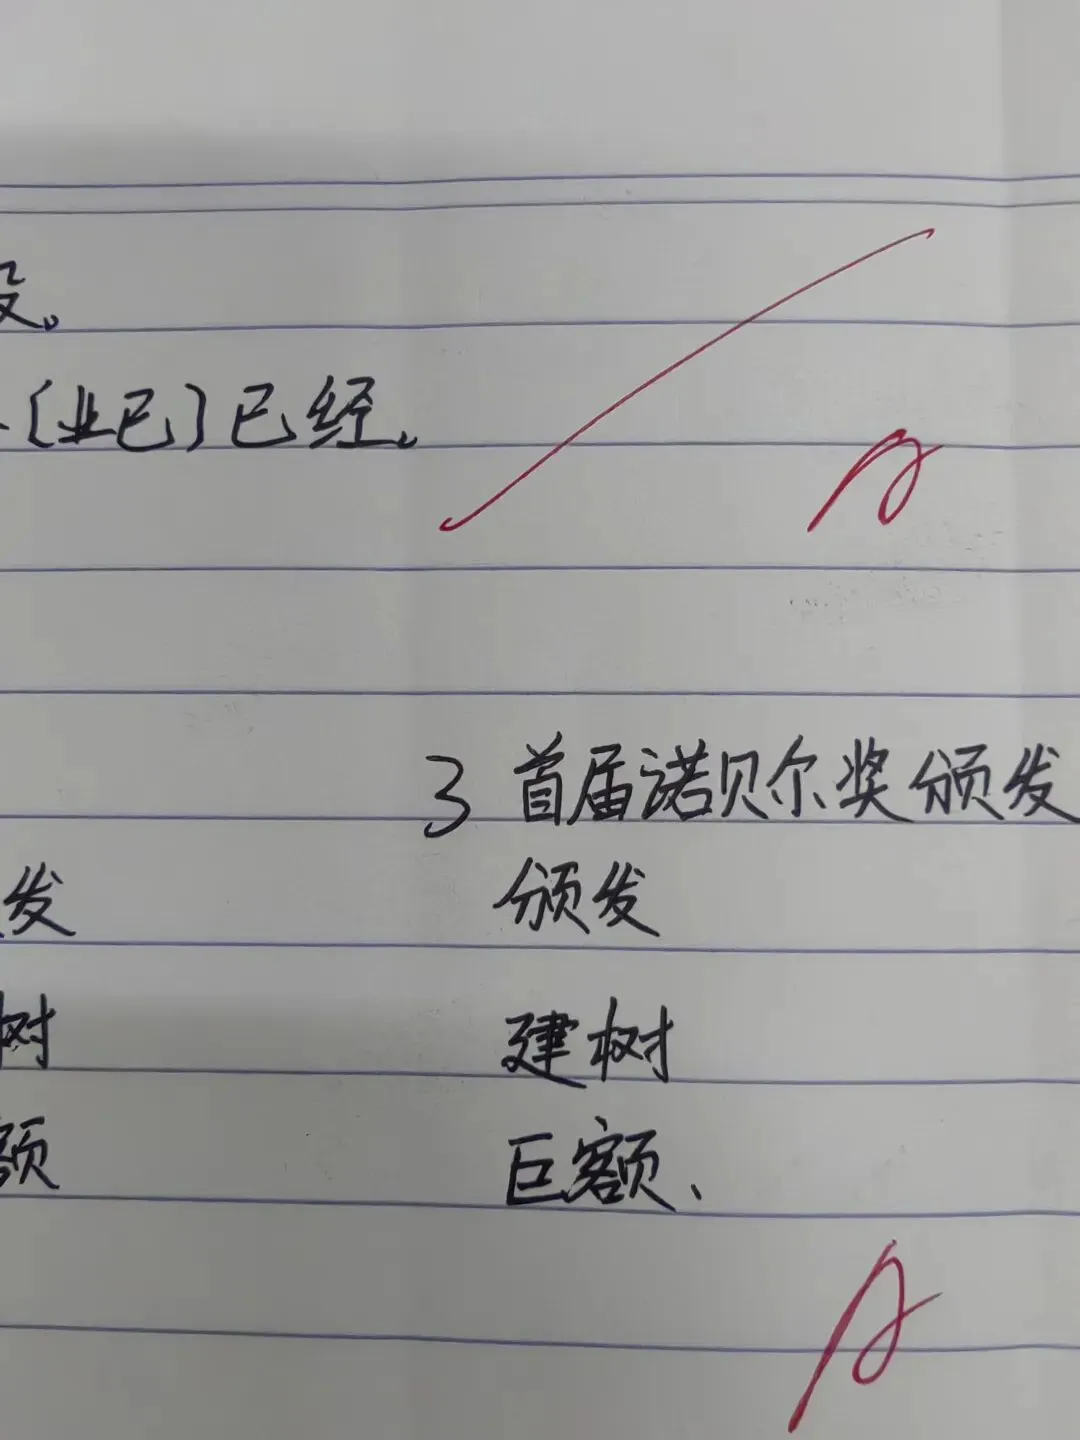 没。
〔业已〕已经。
3 首届诺贝尔奖颁发
发 颁发
树 建树
额 巨额、